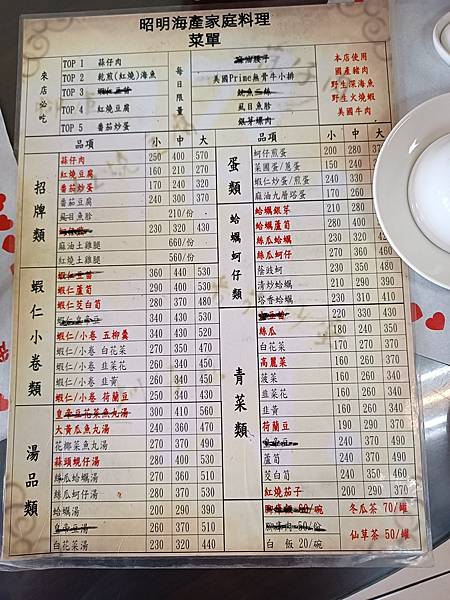 昭明海產家庭料理
菜單
來店必吃
TOP 1 蒜仔肉
TOP 2 乾煎(紅燒)海魚
TOP 3 蝦仁
TOP 4 紅燒豆腐
TOP 5 番茄炒蛋
每日限量
麻油腰子
美國Prime無骨牛小排
魷魚三絲
虱目魚肚
銀芽螺肉
本店使用
國產豬肉
野生深海魚
野生火燒蝦
美國牛肉
品項 小 中 大
招牌類
蒜仔肉 250 400 570
紅燒豆腐 160 210 270
番茄炒蛋 170 240 320
番茄豆腐 160 240 320
虱目魚肚 210/份
230 320 430
麻油土雞腿 660/份
紅燒土雞腿 560/份
蝦仁小卷類
360 440 530
蝦仁蘆筍 290 400 530
蝦仁茭白筍 280 370 480
蝦仁皇帝豆 340 430 530
蝦仁/小卷 五柳羹 340 430 530
蝦仁/小卷 白花菜 270 350 470
蝦仁/小卷 韭菜花 260 350 450
蝦仁/小卷 韭黃 260 350 450
蝦仁/小卷 荷蘭豆 250 340 430
湯品類
皇帝豆花菜魚丸湯 300 410 560
大黃瓜魚丸湯 270 370 490
花椰菜魚丸湯 270 370 490
蒜頭蜆仔湯 280 400 530
絲瓜蛤蠣湯 270 360 510
絲瓜蚵仔湯 280 350 500
蛤蠣湯 200 350 500
皇帝豆湯 260 370 510
白花菜湯 230 320 440
品項 小 中 大
蛋類
蚵仔煎蛋 200 280
菜圃蛋/蔥蛋 150 210
蝦仁炒蛋/煎蛋 240 340
麻油九層塔蛋 160 240
蛤蠣蚵仔類
蛤蠣銀芽 210 310
蛤蠣蘆筍 280 380
絲瓜蛤蠣 230 320
絲瓜蚵仔 230 330 460
蔭豉蚵 220 350 480
清炒蛤蠣 210 320 450
塔香蛤蠣 230 310 410
青菜類
240 340 450
絲瓜 180 240 350
白花菜 170 220 320
高麗菜 160 260 340
菠菜 160 260 340
韭菜花 160 260 370
韭黃 160 260 370
荷蘭豆 210 290 400
皇帝豆 240 370 490
蘆筍 240 370 500
茭白筍 240 350 460
紅燒茄子 200 290 370
90/碗
50/份
白 飯 20/碗
冬瓜茶 70/罐
仙草茶 50/罐